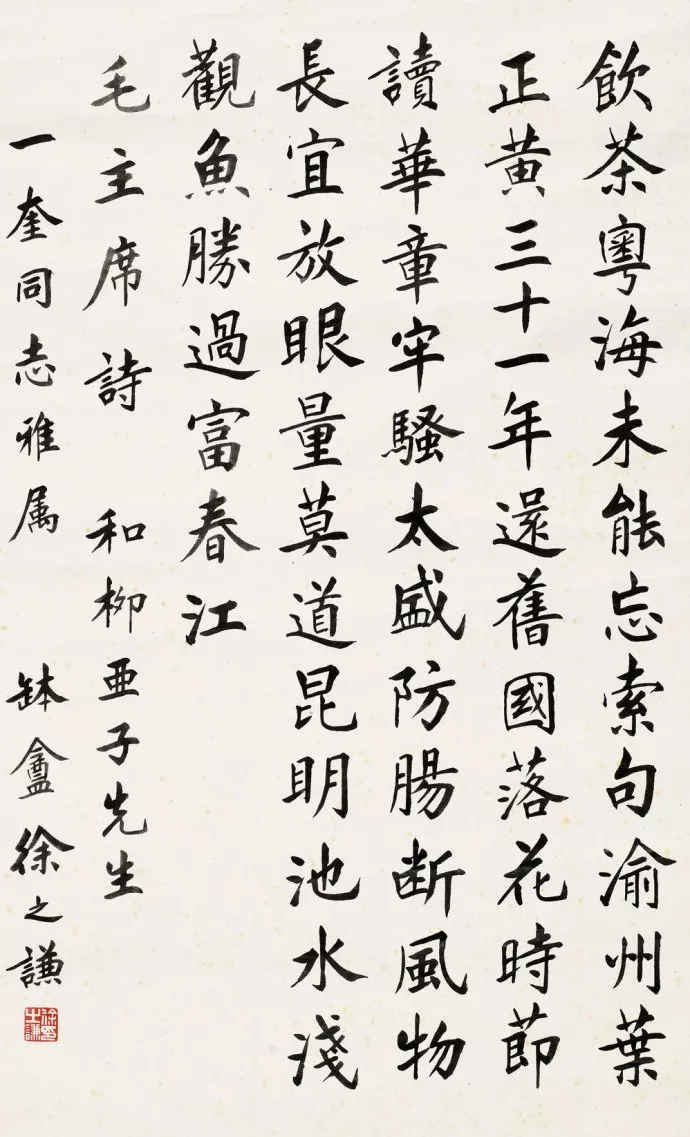 飲茶粵海未能忘索句渝州葉
正黄三十一年還舊國落花時節
讀華章牢騷太盛防腸断風物
長宜放眼量莫道昆明池水淺
觀魚勝過富春江
毛主席詩 和柳亜子先生
一奎同志雅属 缽盦徐之謙
徐之謙